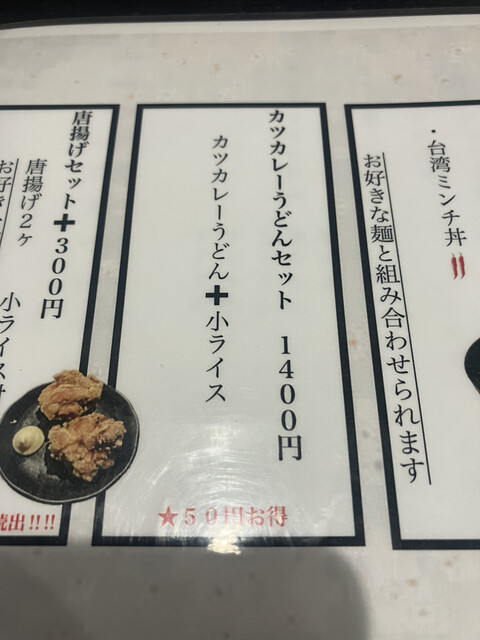 ・台湾ミンチ丼
お好きな麺と組み合わせられます
カツカレーうどんセット 1400円
カツカレーうどん➕小ライス
★50円お得
唐揚げセット➕300円
唐揚げ2ヶ
お好き
小ライス
続出!!!!